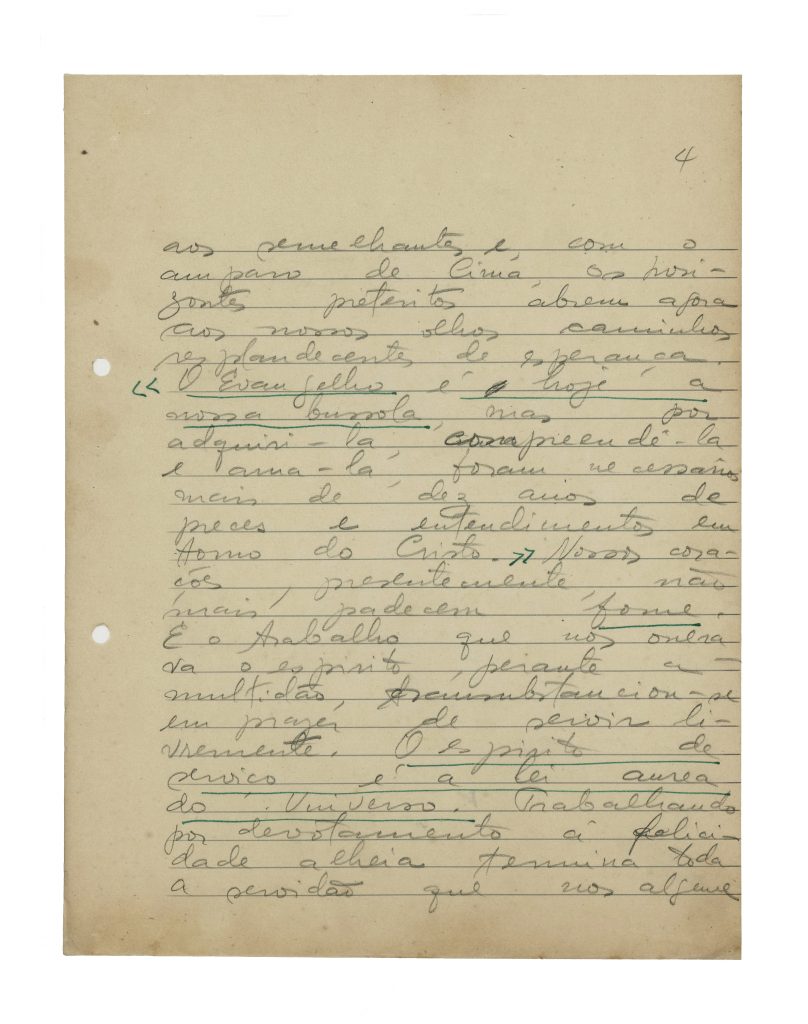 4
aos semelhantes e, com o
amparo de Cima, os hori-
zontes preteritos abrem agora
aos nossos olhos caminhos
resplandecentes de esperança.
« O Evangelho é hoje a
nossa bussola, mas por
adquiri-la, compreendê-la
e ama-la, foram necessarios
mais de dez anos de
preces e entendimentos em
torno do Cristo. » Nossos cora-
ções, presentemente, não
mais padecem fome.
E o trabalho que nos onera
va o espirito, perante a
multidão, transubstanciou-se
em prazer de servir li-
vremente. O espirito de
serviço é a lei aurea
do Universo. Trabalhando
por devotamento á felici-
dade alheia termina toda
a servidão que nos algeme